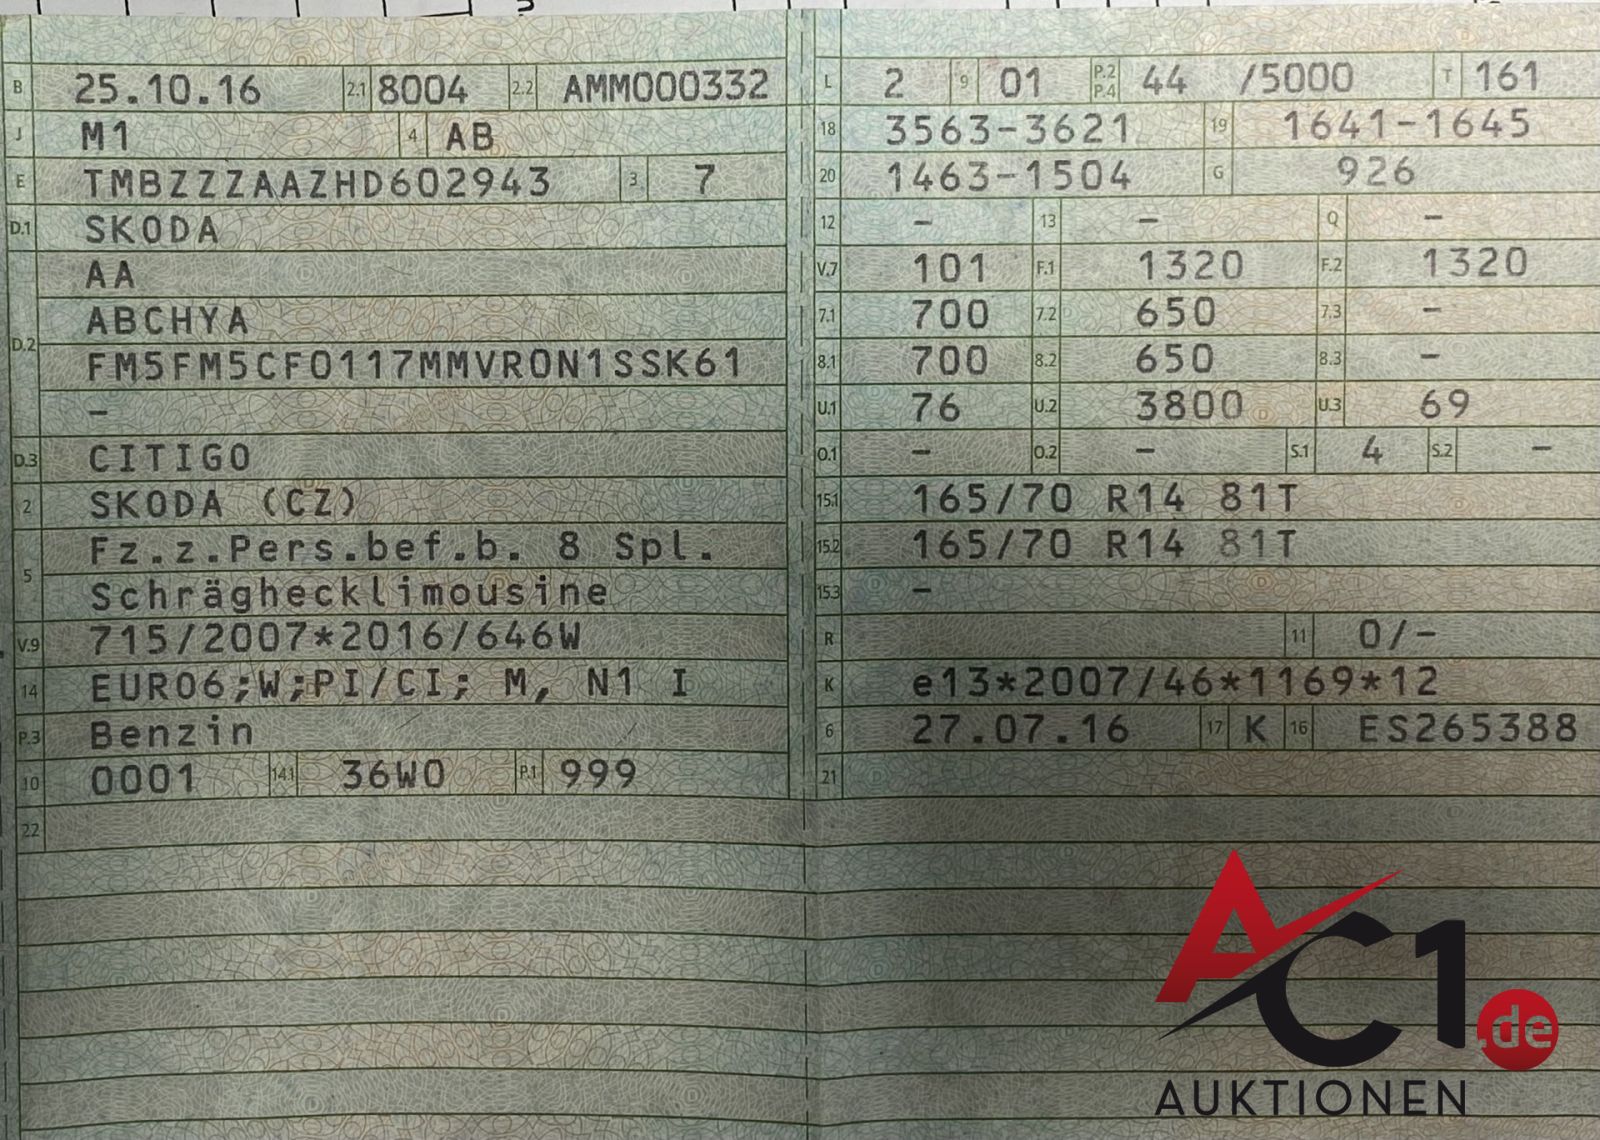 B 25.10.16 2.1 8004 2.2 AMM000332
J M1 4 AB
E TMBZZZAAZHD602943 3 7
D.1 SKODA
AA
D.2 ABCHYA
FM5FM5CF0117MMVR0N1SSK61
-
D.3 CITIGO
2 SKODA (CZ)
Fz.z.Pers.bef.b. 8 Spl.
5 Schräghecklimousine
V.9 715/2007*2016/646W
14 EURO6;W;PI/CI; M, N1 I
P.3 Benzin
10 0001 14.1 36W0 P.1 999
22
L 2 9 01 P.2 P.4 44 /5000 T 161
18 3563-3621 19 1641-1645
20 1463-1504 G 926
12 - 13 - Q -
V.7 101 F.1 1320 F.2 1320
7.1 700 7.2 650 7.3 -
8.1 700 8.2 650 8.3 -
U.1 76 U.2 3800 U.3 69
O.1 - O.2 - S.1 4 S.2 -
15.1 165/70 R14 81T
15.2 165/70 R14 81T
15.3 -
R 11 0/-
K e13*2007/46*1169*12
6 27.07.16 17 K 16 ES265388
21
AC1.de
AUKTIONEN